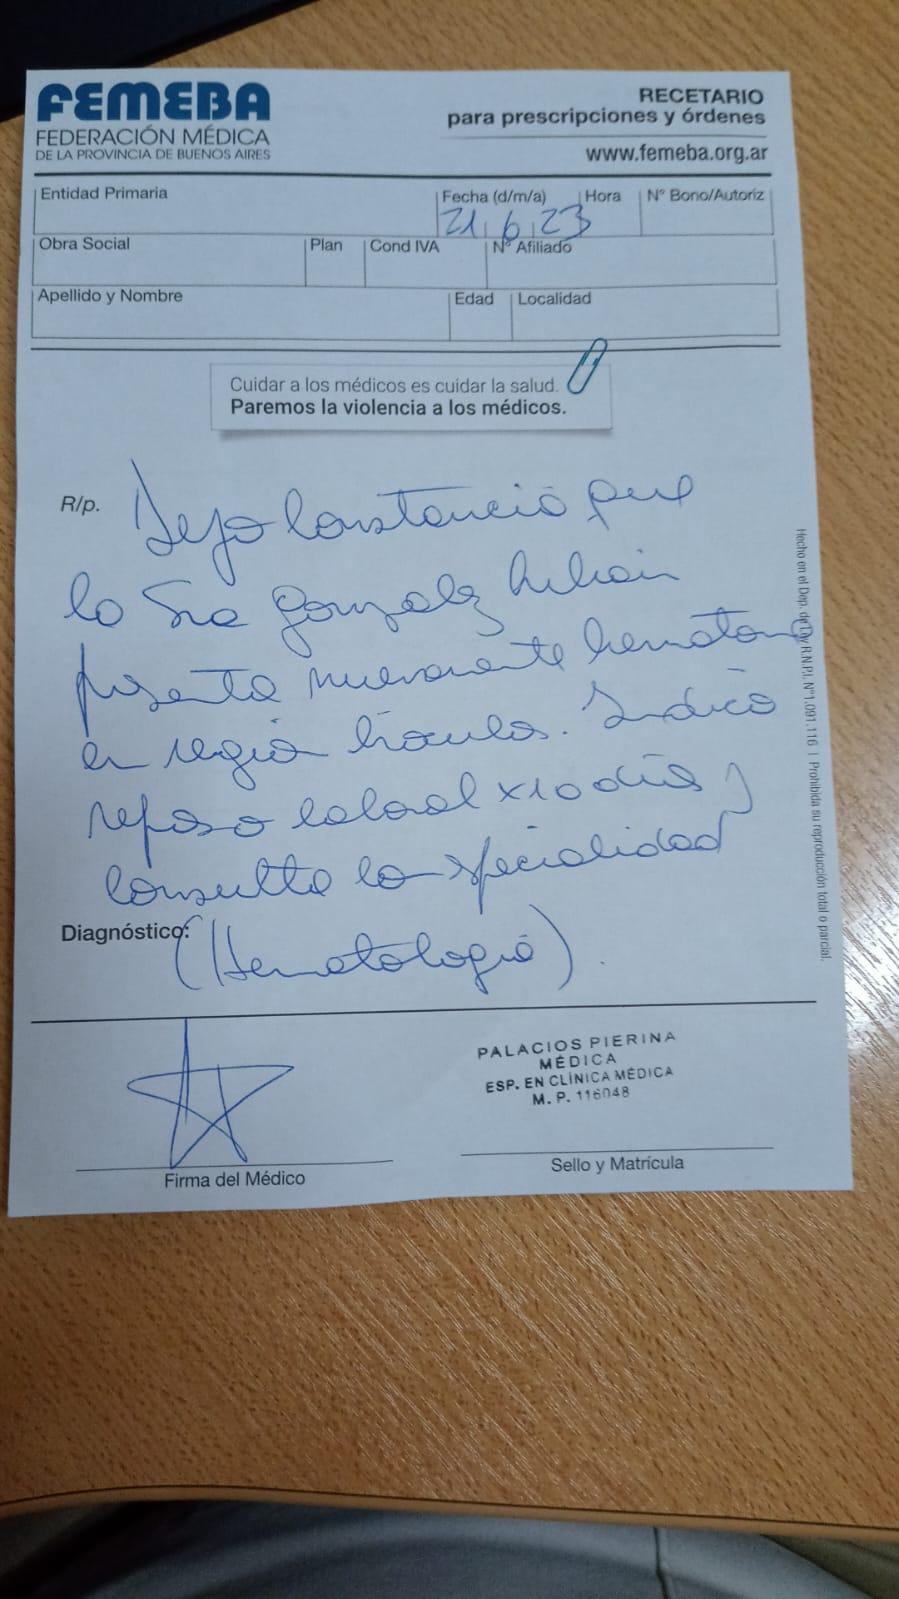 FEMEBA
FEDERACIÓN MÉDICA
DE LA PROVINCIA DE BUENOS AIRES
RECETARIO
para prescripciones y órdenes
www.femeba.org.ar
Entidad Primaria
Fecha (d/m/a) Hora N° Bono/Autoriz
21 6 23
Obra Social Plan Cond IVA N° Afiliado
Apellido y Nombre Edad Localidad
Cuidar a los médicos es cuidar la salud.
Paremos la violencia a los médicos.
R/p. Dejo constancia que
la Sra Gonzalez
presenta nuevamente hematoma
en región. Indico
reposo laboral x 10 días y
consulta la especialidad
Diagnóstico: (Hematología).
PALACIOS PIERINA
MÉDICA
ESP. EN CLÍNICA MÉDICA
M. P. 116048
Firma del Médico
Sello y Matrícula
Hecho en el Dep. de Ley R.N.P.I. N°1.091.116 | Prohibida su reproducción total o parcial.